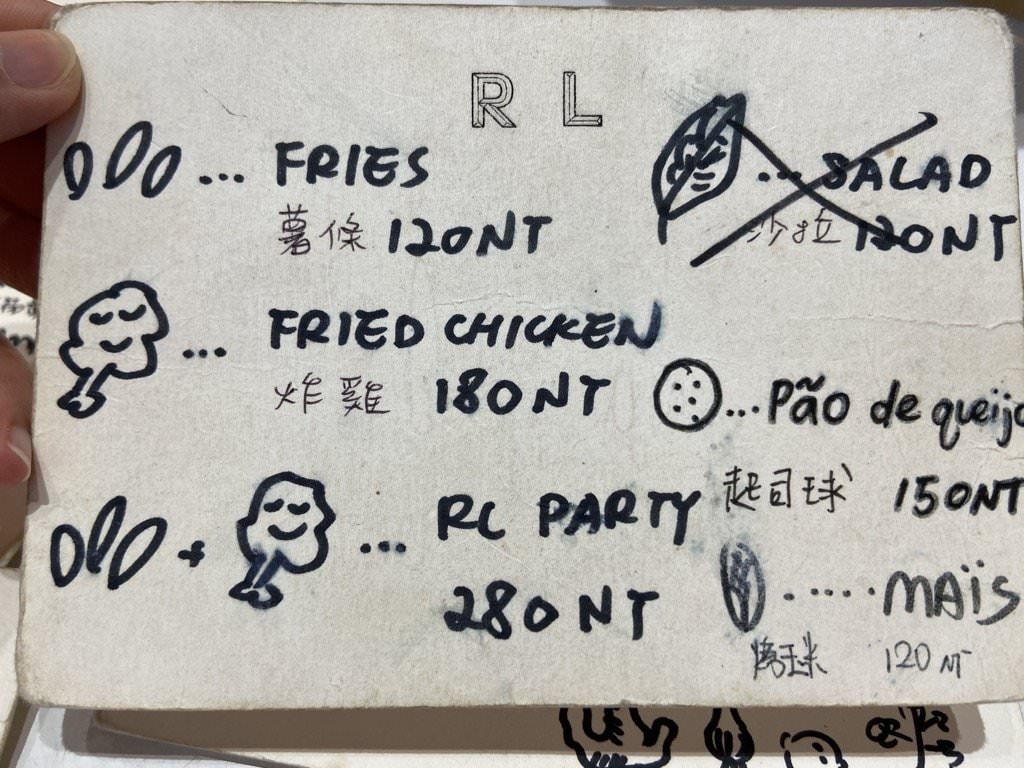 R L
... FRIES
薯條 120NT
... FRIED CHICKEN
炸雞 180NT
+ ... RC PARTY
280 NT
... SALAD
沙拉 120NT
... Pão de queijo
起司球 150NT
...... MAÏS
烤玉米 120 NT